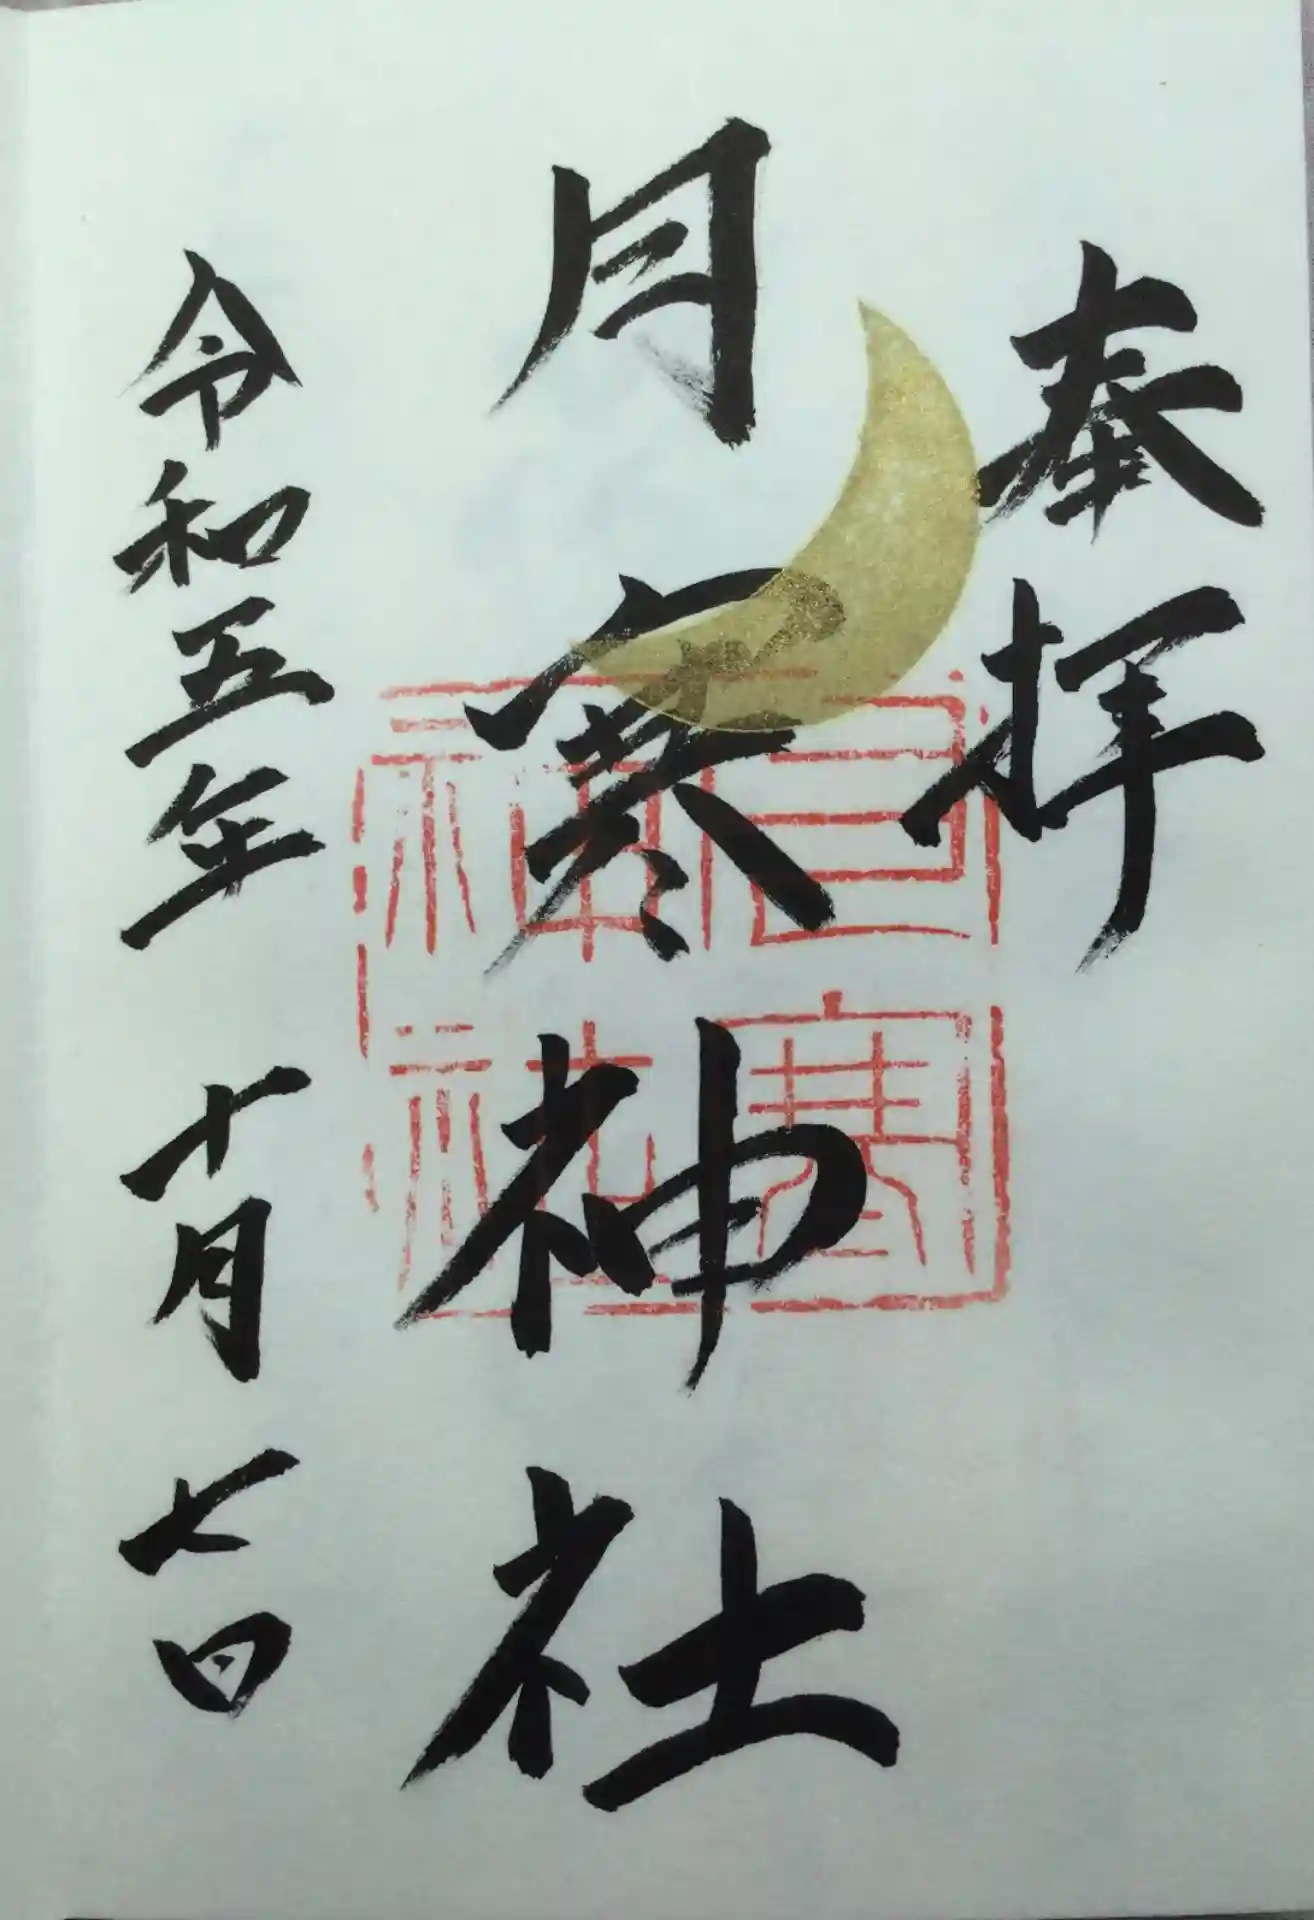 奉拝
月寒神社
月寒
神社
令和五年 十月 七日